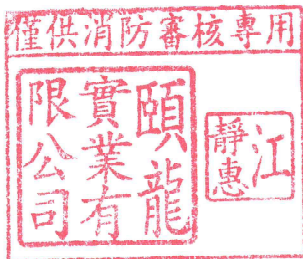 僅供消防審核專用
頤龍實業有限公司
江靜惠